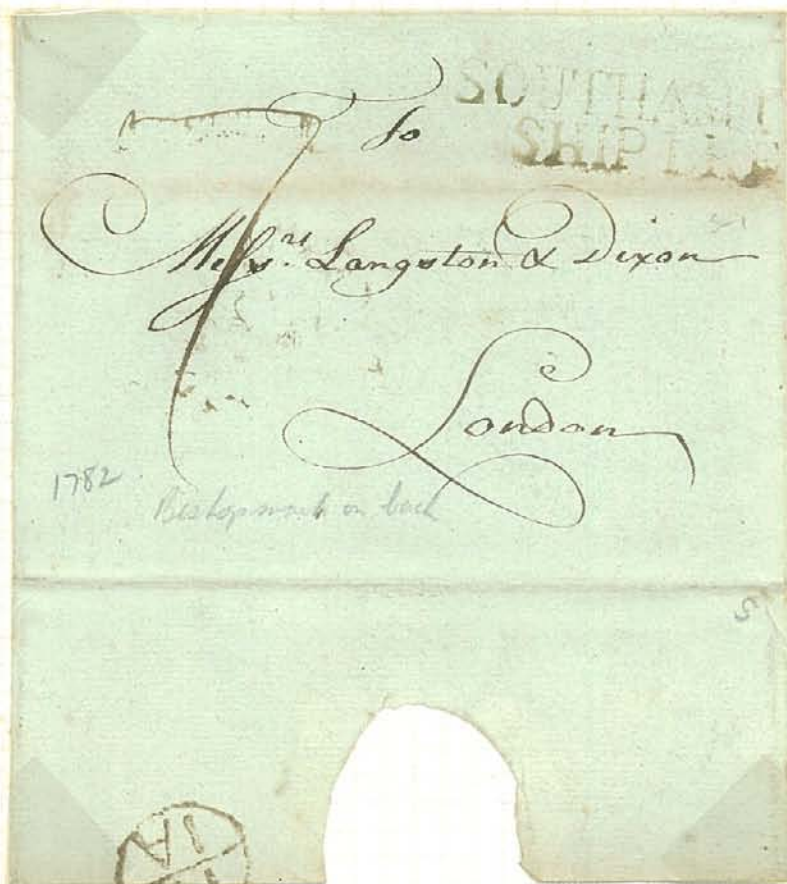 SOUTHAMP
SHIP
7
To
Messrs. Langston & Dixon
London
1782
Bishopmark on back
S
IA